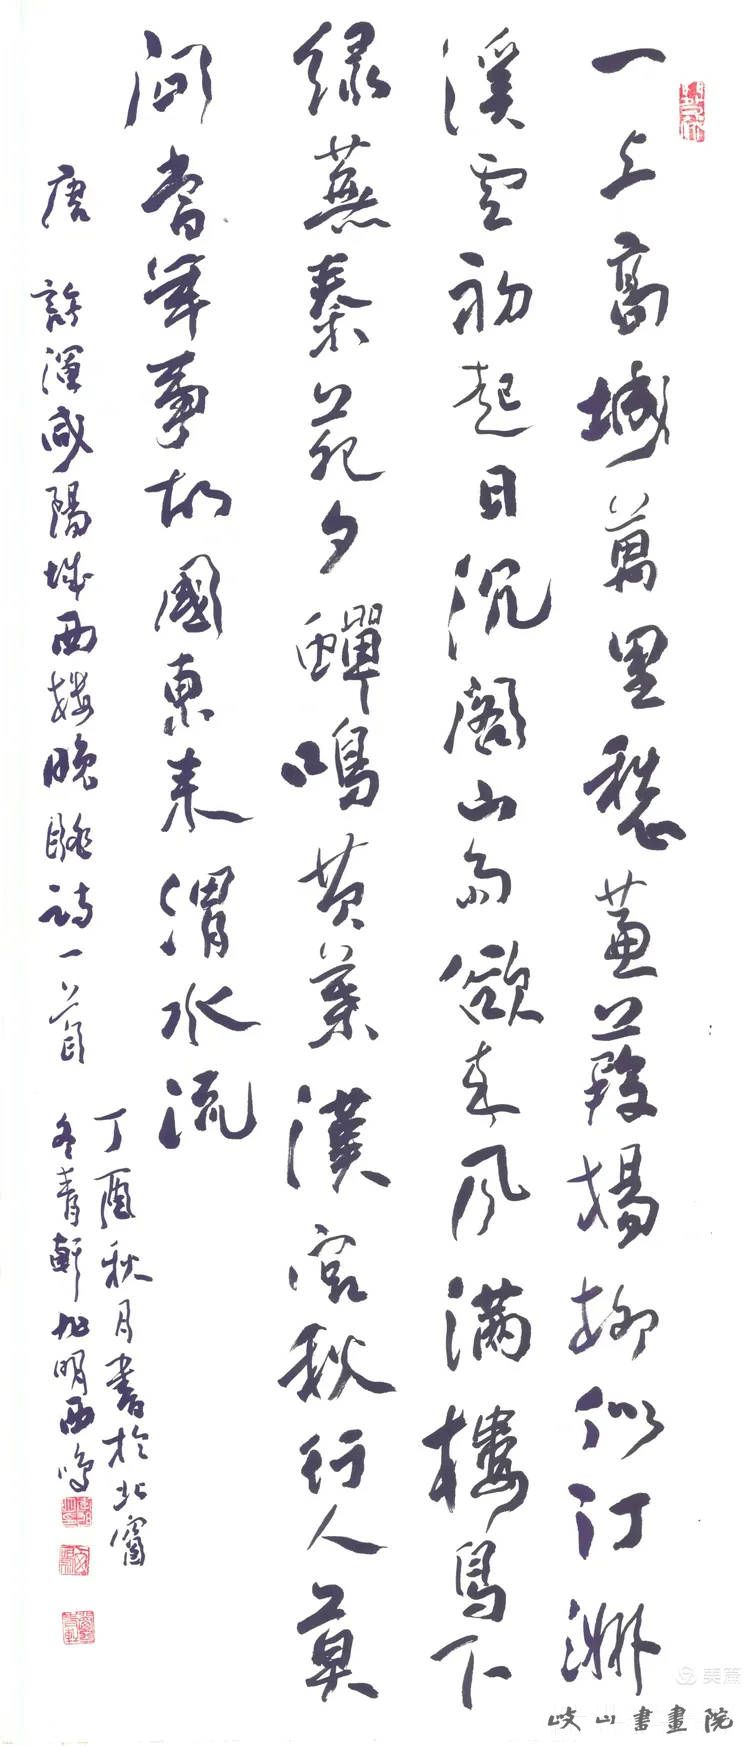 一上高城萬里愁蒹葭楊柳似汀洲
溪雲初起日沉閣山雨欲來風滿樓鳥下
绿蕪秦苑夕蟬鳴黄葉漢宮秋行人莫
问當年事故國東來渭水流
唐 許渾咸陽城西樓晚眺詩一首
丁酉秋月書於北窗
冬青軒 旭明西鳴
美篇
岐山書畫院